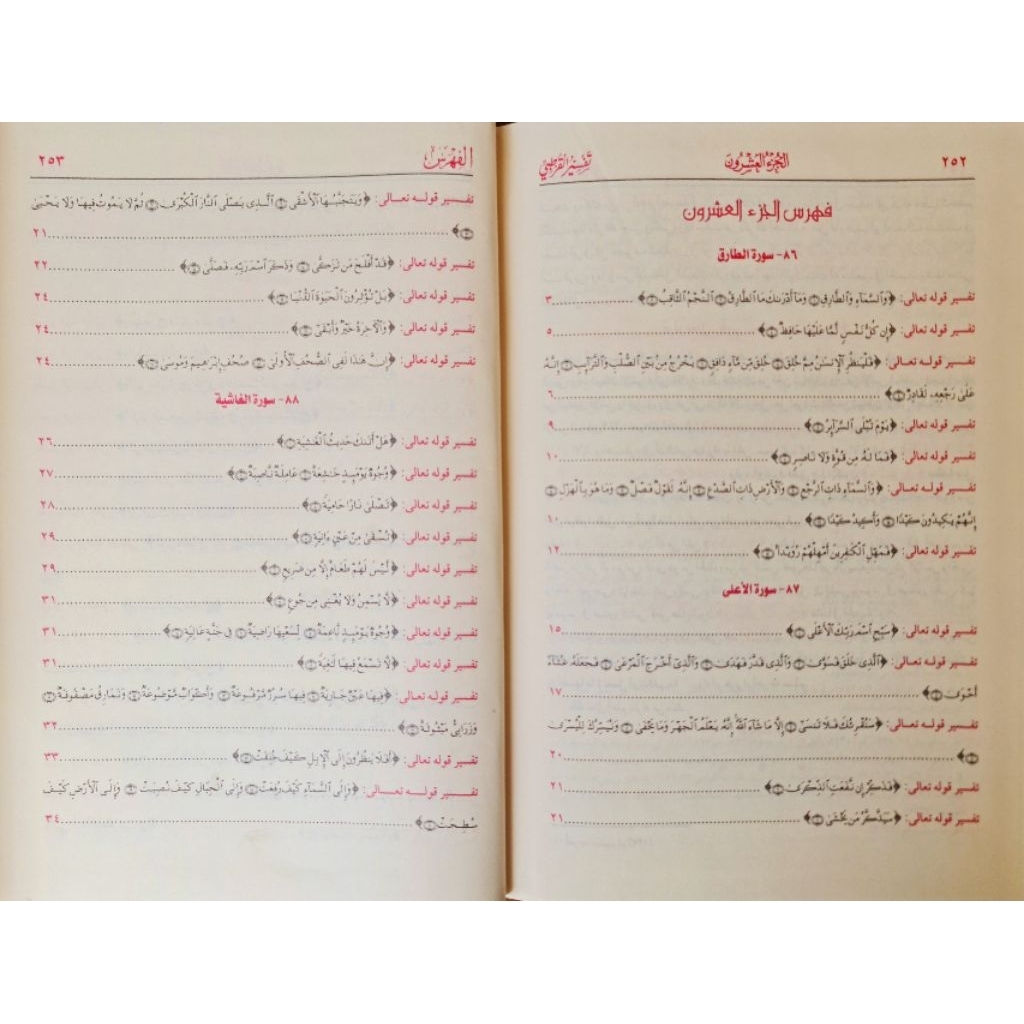 ٢٥٢ الجزء العشرون تفسير القرطبي
فهرس الجزء العشرون
٨٦- سورة الطارق
تفسير قوله تعالى: ﴿وَالسَّمَاءِ وَالطَّارِقِ وَمَا أَدْرَىٰكَ مَا الطَّارِقُ النَّجْمُ الثَّاقِبُ﴾ ٣
تفسير قوله تعالى: ﴿إِن كُلُّ نَفْسٍ لَّمَّا عَلَيْهَا حَافِظٌ﴾ ٥
تفسير قوله تعالى: ﴿فَلْيَنظُرِ الْإِنسَٰنُ مِمَّ خُلِقَ خُلِقَ مِن مَّاءٍ دَافِقٍ يَخْرُجُ مِنْ بَيْنِ الصُّلْبِ وَالتَّرَائِبِ إِنَّهُ
عَلَىٰ رَجْعِهِ لَقَادِرٌ﴾ ٦
تفسير قوله تعالى: ﴿يَوْمَ تُبْلَى السَّرَائِرُ﴾ ٩
تفسير قوله تعالى: ﴿فَمَا لَهُ مِن قُوَّةٍ وَلَا نَاصِرٍ﴾ ١٠
تفسير قوله تعالى: ﴿وَالسَّمَاءِ ذَاتِ الرَّجْعِ وَالْأَرْضِ ذَاتِ الصَّدْعِ إِنَّهُ لَقَوْلٌ فَصْلٌ وَمَا هُوَ بِالْهَزْلِ
إِنَّهُمْ يَكِيدُونَ كَيْدًا وَأَكِيدُ كَيْدًا﴾ ١٠
تفسير قوله تعالى: ﴿فَمَهِّلِ الْكَٰفِرِينَ أَمْهِلْهُمْ رُوَيْدًا﴾ ١٢
٨٧- سورة الأعلى
تفسير قوله تعالى: ﴿سَبِّحِ اسْمَ رَبِّكَ الْأَعْلَى﴾ ١٥
تفسير قوله تعالى: ﴿الَّذِي خَلَقَ فَسَوَّىٰ وَالَّذِي قَدَّرَ فَهَدَىٰ وَالَّذِي أَخْرَجَ الْمَرْعَىٰ فَجَعَلَهُ غُثَاءً
أَحْوَىٰ﴾ ١٧
تفسير قوله تعالى: ﴿سَنُقْرِئُكَ فَلَا تَنسَىٰ إِلَّا مَا شَاءَ اللَّهُ إِنَّهُ يَعْلَمُ الْجَهْرَ وَمَا يَخْفَىٰ وَنُيَسِّرُكَ لِلْيُسْرَىٰ
﴾ ٢٠
تفسير قوله تعالى: ﴿فَذَكِّرْ إِن نَّفَعَتِ الذِّكْرَىٰ﴾ ٢١
تفسير قوله تعالى: ﴿سَيَذَّكَّرُ مَن يَخْشَىٰ﴾ ٢١
الفهرس ٢٥٣
تفسير قوله تعالى: ﴿وَيَتَجَنَّبُهَا الْأَشْقَى الَّذِي يَصْلَى النَّارَ الْكُبْرَىٰ ثُمَّ لَا يَمُوتُ فِيهَا وَلَا يَحْيَىٰ
﴾ ٢١
تفسير قوله تعالى: ﴿قَدْ أَفْلَحَ مَن تَزَكَّىٰ وَذَكَرَ اسْمَ رَبِّهِ فَصَلَّىٰ﴾ ٢٢
تفسير قوله تعالى: ﴿بَلْ تُؤْثِرُونَ الْحَيَوٰةَ الدُّنْيَا﴾ ٢٤
تفسير قوله تعالى: ﴿وَالْآخِرَةُ خَيْرٌ وَأَبْقَىٰ﴾ ٢٤
تفسير قوله تعالى: ﴿إِنَّ هَٰذَا لَفِي الصُّحُفِ الْأُولَىٰ صُحُفِ إِبْرَاهِيمَ وَمُوسَىٰ﴾ ٢٤
٨٨- سورة الغاشية
تفسير قوله تعالى: ﴿هَلْ أَتَىٰكَ حَدِيثُ الْغَٰشِيَةِ﴾ ٢٦
تفسير قوله تعالى: ﴿وُجُوهٌ يَوْمَئِذٍ خَٰشِعَةٌ عَامِلَةٌ نَّاصِبَةٌ﴾ ٢٧
تفسير قوله تعالى: ﴿تَصْلَىٰ نَارًا حَامِيَةً﴾ ٢٨
تفسير قوله تعالى: ﴿تُسْقَىٰ مِنْ عَيْنٍ ءَانِيَةٍ﴾ ٢٩
تفسير قوله تعالى: ﴿لَّيْسَ لَهُمْ طَعَامٌ إِلَّا مِن ضَرِيعٍ﴾ ٢٩
تفسير قوله تعالى: ﴿لَّا يُسْمِنُ وَلَا يُغْنِي مِن جُوعٍ﴾ ٣١
تفسير قوله تعالى: ﴿وُجُوهٌ يَوْمَئِذٍ نَّاعِمَةٌ لِّسَعْيِهَا رَاضِيَةٌ فِي جَنَّةٍ عَالِيَةٍ﴾ ٣١
تفسير قوله تعالى: ﴿لَّا تَسْمَعُ فِيهَا لَٰغِيَةً﴾ ٣١
تفسير قوله تعالى: ﴿فِيهَا عَيْنٌ جَارِيَةٌ فِيهَا سُرُرٌ مَّرْفُوعَةٌ وَأَكْوَابٌ مَّوْضُوعَةٌ وَنَمَارِقُ مَصْفُوفَةٌ
وَزَرَابِيُّ مَبْثُوثَةٌ﴾ ٣٢
تفسير قوله تعالى: ﴿أَفَلَا يَنظُرُونَ إِلَى الْإِبِلِ كَيْفَ خُلِقَتْ﴾ ٣٣
تفسير قوله تعالى: ﴿وَإِلَى السَّمَاءِ كَيْفَ رُفِعَتْ وَإِلَى الْجِبَالِ كَيْفَ نُصِبَتْ وَإِلَى الْأَرْضِ كَيْفَ
سُطِحَتْ﴾ ٣٤